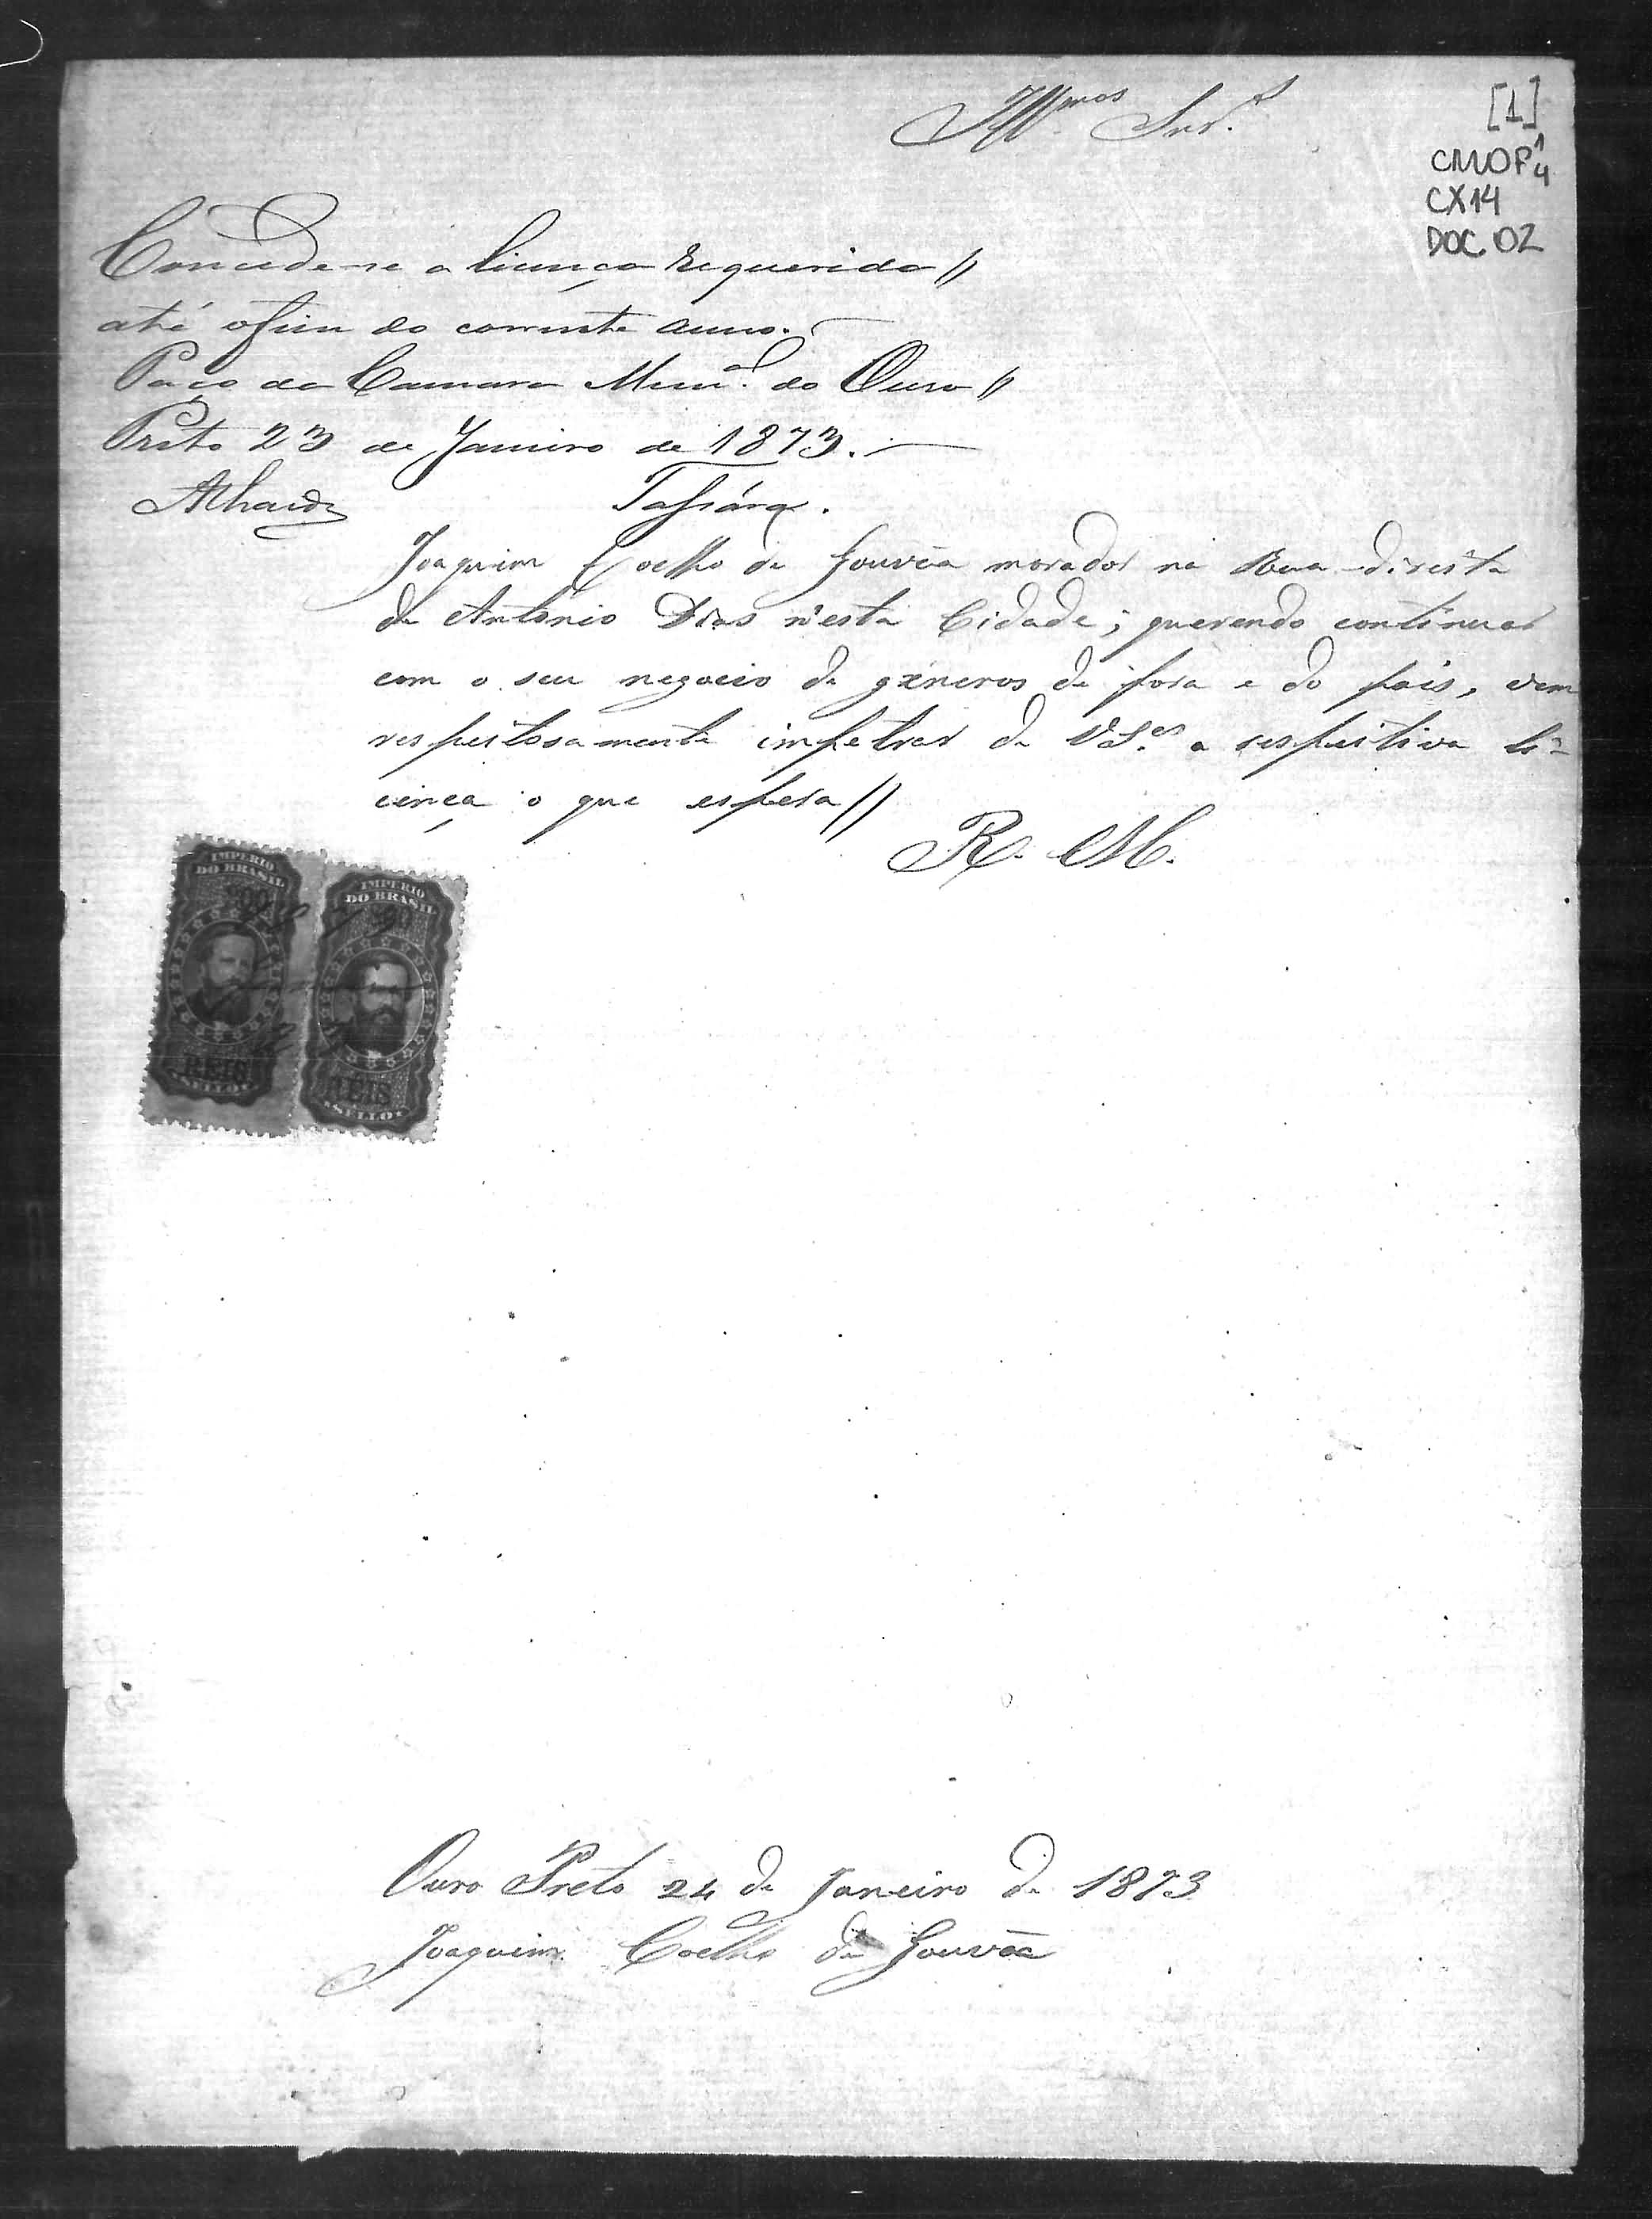 Ill.mos Snr.s
[1]
CMOP 1/4
CX14
DOC. 02
Concede-se a licença requerida //
até o fim do corrente anno.
Paço da Camara Mun.al do Ouro //
Preto 23 de Janeiro de 1873.
Tassára.
Joaquim Coelho de Gouvêa morador na Rua direita
de Antonio Dias n'esta Cidade; querendo continuar
com o seu negocio de generos de fora e do país, vem
respeitosamente impetrar de V.S.es a respectiva li-
cença o que espera //
R. M.
IMPERIO
DO BRASIL
200
REIS
SELLO
IMPERIO
DO BRASIL
REIS
SELLO
Ouro Preto 24 de Janeiro de 1873
Joaquim Coelho de Gouvêa